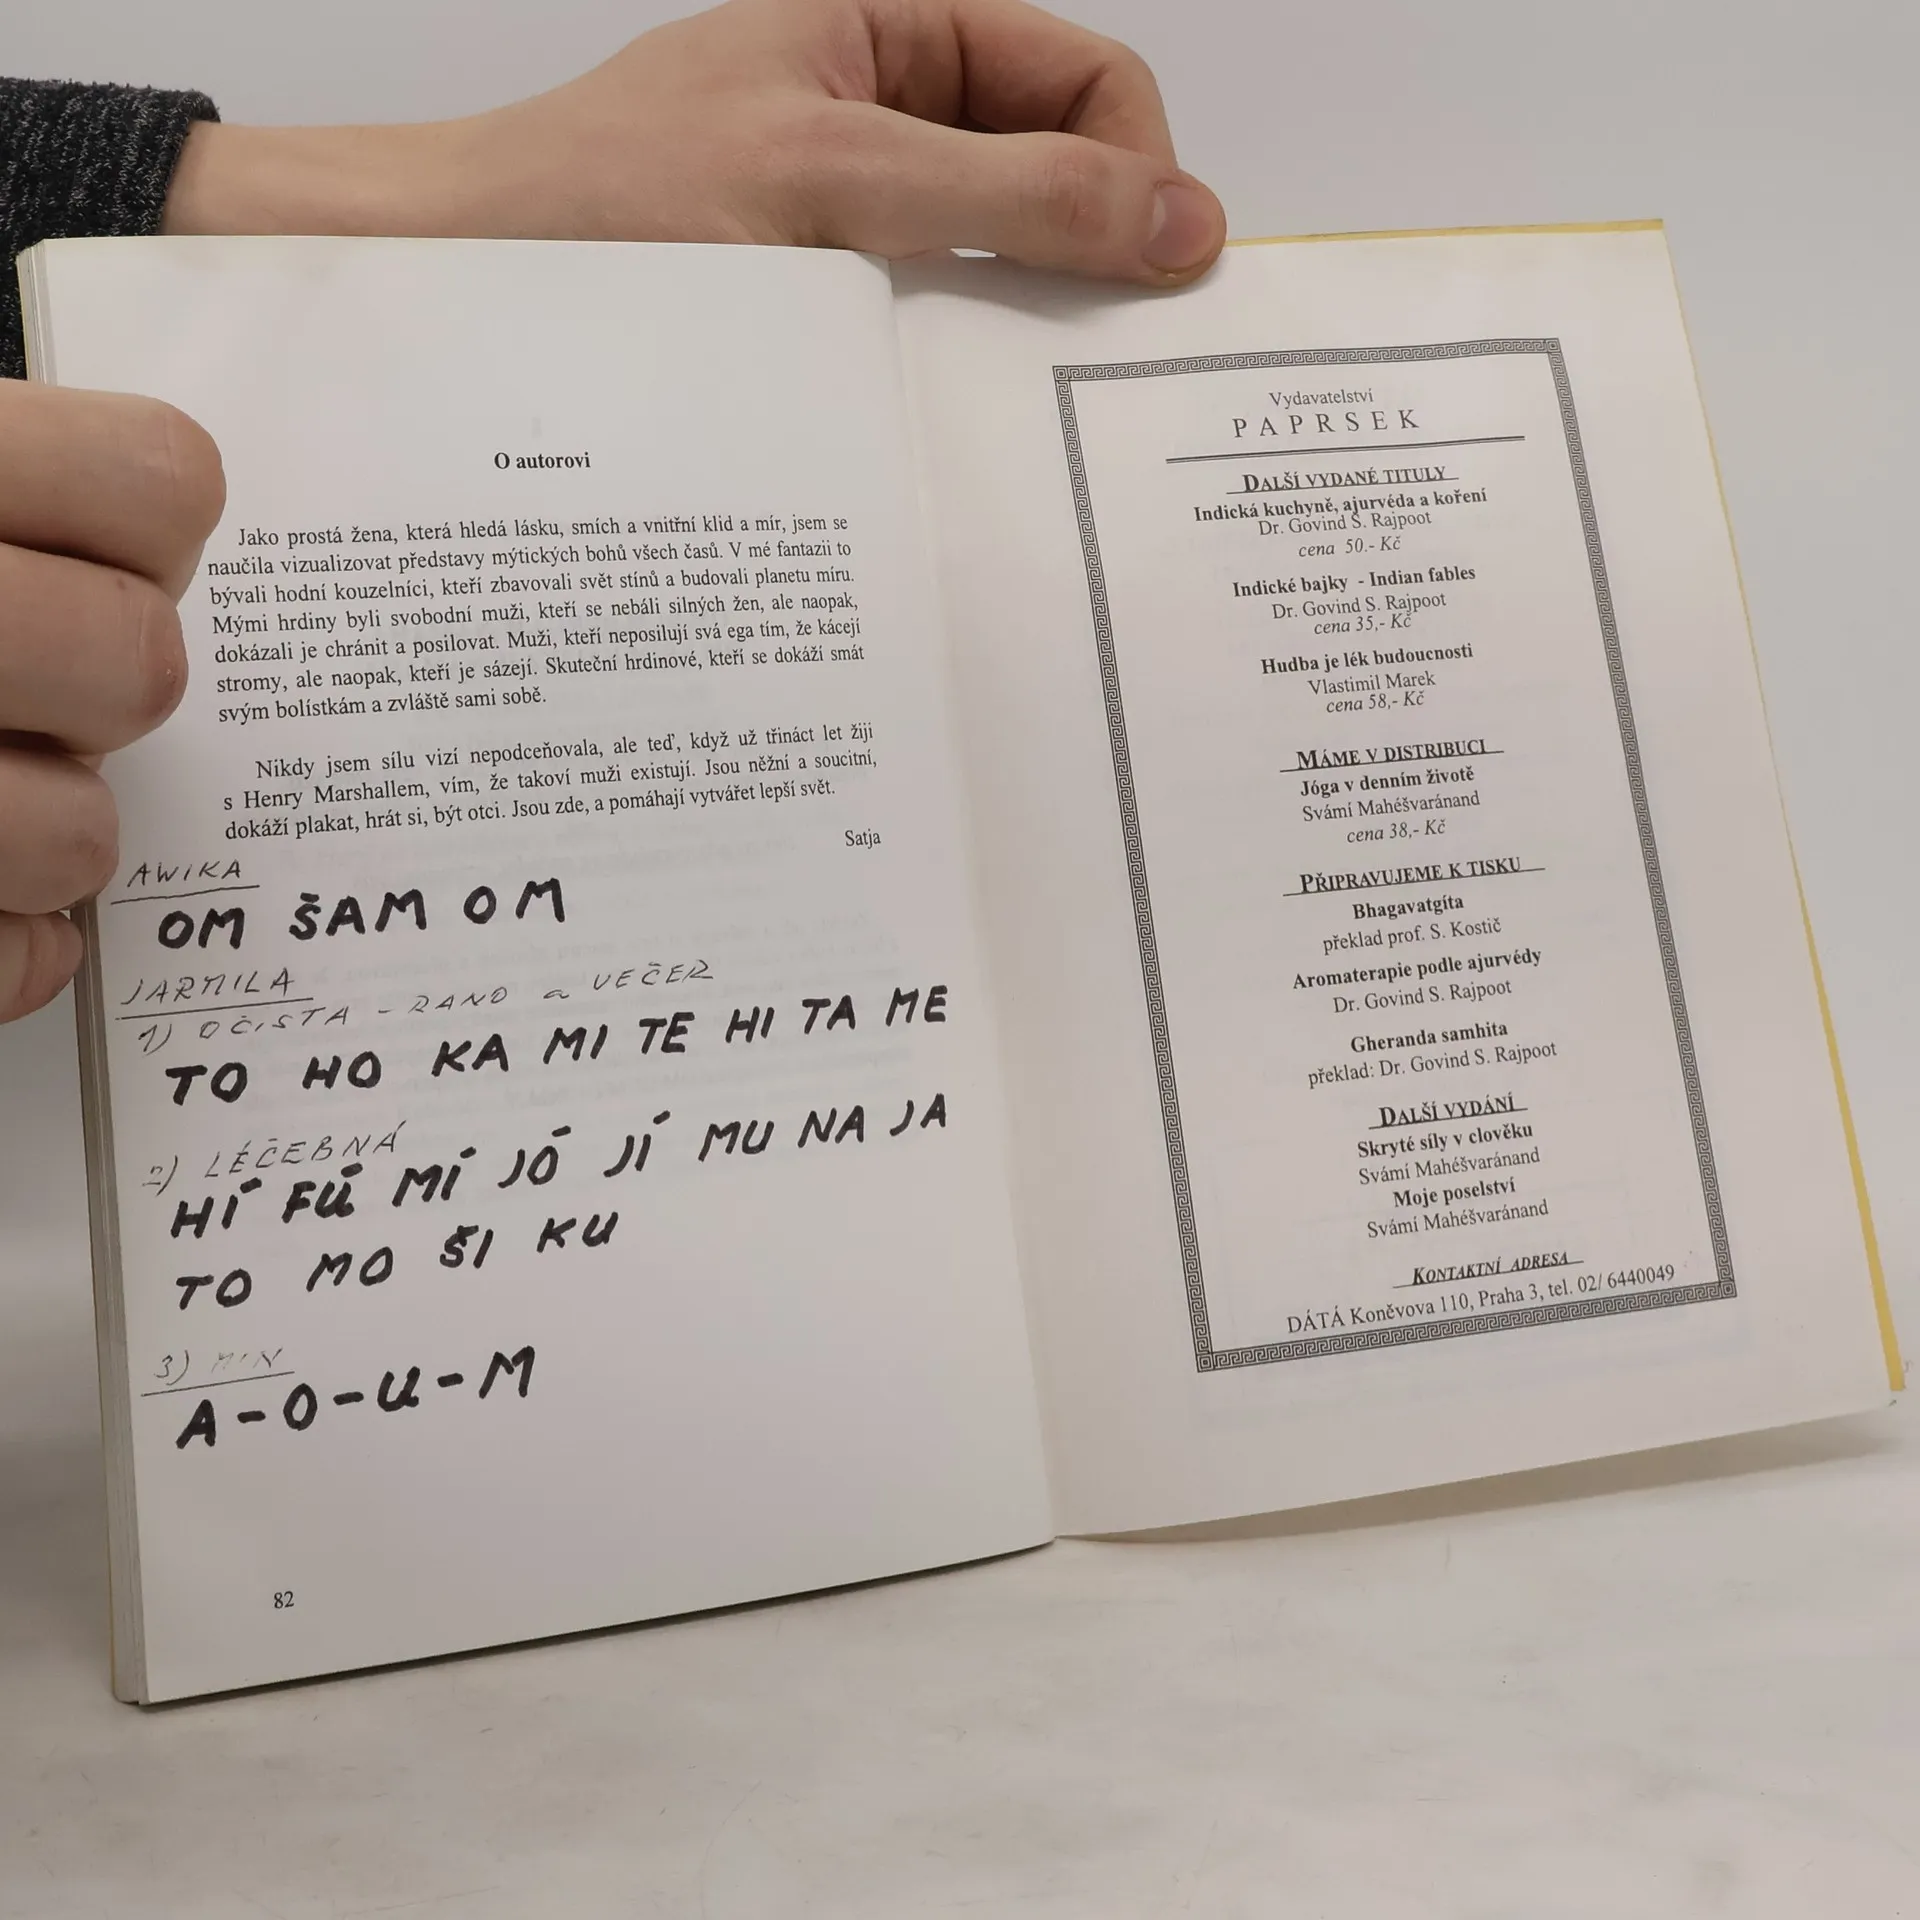 O autorovi
Jako prostá žena, která hledá lásku, smích a vnitřní klid a mír, jsem se
naučila vizualizovat představy mýtických bohů všech časů. V mé fantazii to
bývali hodní kouzelníci, kteří zbavovali svět stínů a budovali planetu míru.
Mými hrdiny byli svobodní muži, kteří se nebáli silných žen, ale naopak,
dokázali je chránit a posilovat. Muži, kteří neposilují svá ega tím, že kácejí
stromy, ale naopak, kteří je sázejí. Skuteční hrdinové, kteří se dokáží smát
svým bolístkám a zvláště sami sobě.
Nikdy jsem sílu vizí nepodceňovala, ale teď, když už třináct let žiji
s Henry Marshallem, vím, že takoví muži existují. Jsou něžní a soucitní,
dokáží plakat, hrát si, být otci. Jsou zde, a pomáhají vytvářet lepší svět.
Satja
AWIKA
OM ŠAM OM
JARMILA
1) OČISTA - RANO a VEČER
TO HO KA MI TE HI TA ME
2) LÉČEBNÁ
HÍ FÚ MÍ JÓ JÍ MU NA JA
TO MO ŠI KU
3)
A-O-U-M
82
Vydavatelství
PAPRSEK
DALŠÍ VYDANÉ TITULY
Indická kuchyně, ajurvéda a koření
Dr. Govind S. Rajpoot
cena 50.- Kč
Indické bajky - Indian fables
Dr. Govind S. Rajpoot
cena 35,- Kč
Hudba je lék budoucnosti
Vlastimil Marek
cena 58,- Kč
MÁME V DISTRIBUCI
Jóga v denním životě
Svámí Mahéšvaránand
cena 38,- Kč
PŘIPRAVUJEME K TISKU
Bhagavatgíta
překlad prof. S. Kostič
Aromaterapie podle ajurvédy
Dr. Govind S. Rajpoot
Gheranda samhita
překlad: Dr. Govind S. Rajpoot
DALŠÍ VYDÁNÍ
Skryté síly v člověku
Svámí Mahéšvaránand
Moje poselství
Svámí Mahéšvaránand
KONTAKTNÍ ADRESA
DÁTÁ Koněvova 110, Praha 3, tel. 02/ 6440049